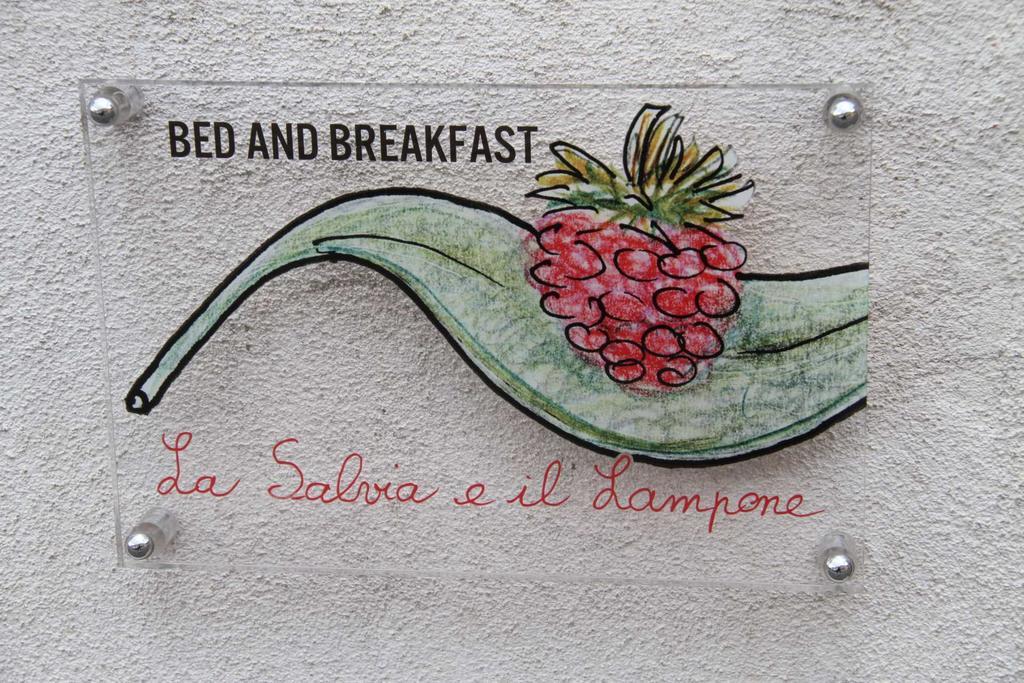 BED AND BREAKFAST
La Salvia e il Lampone